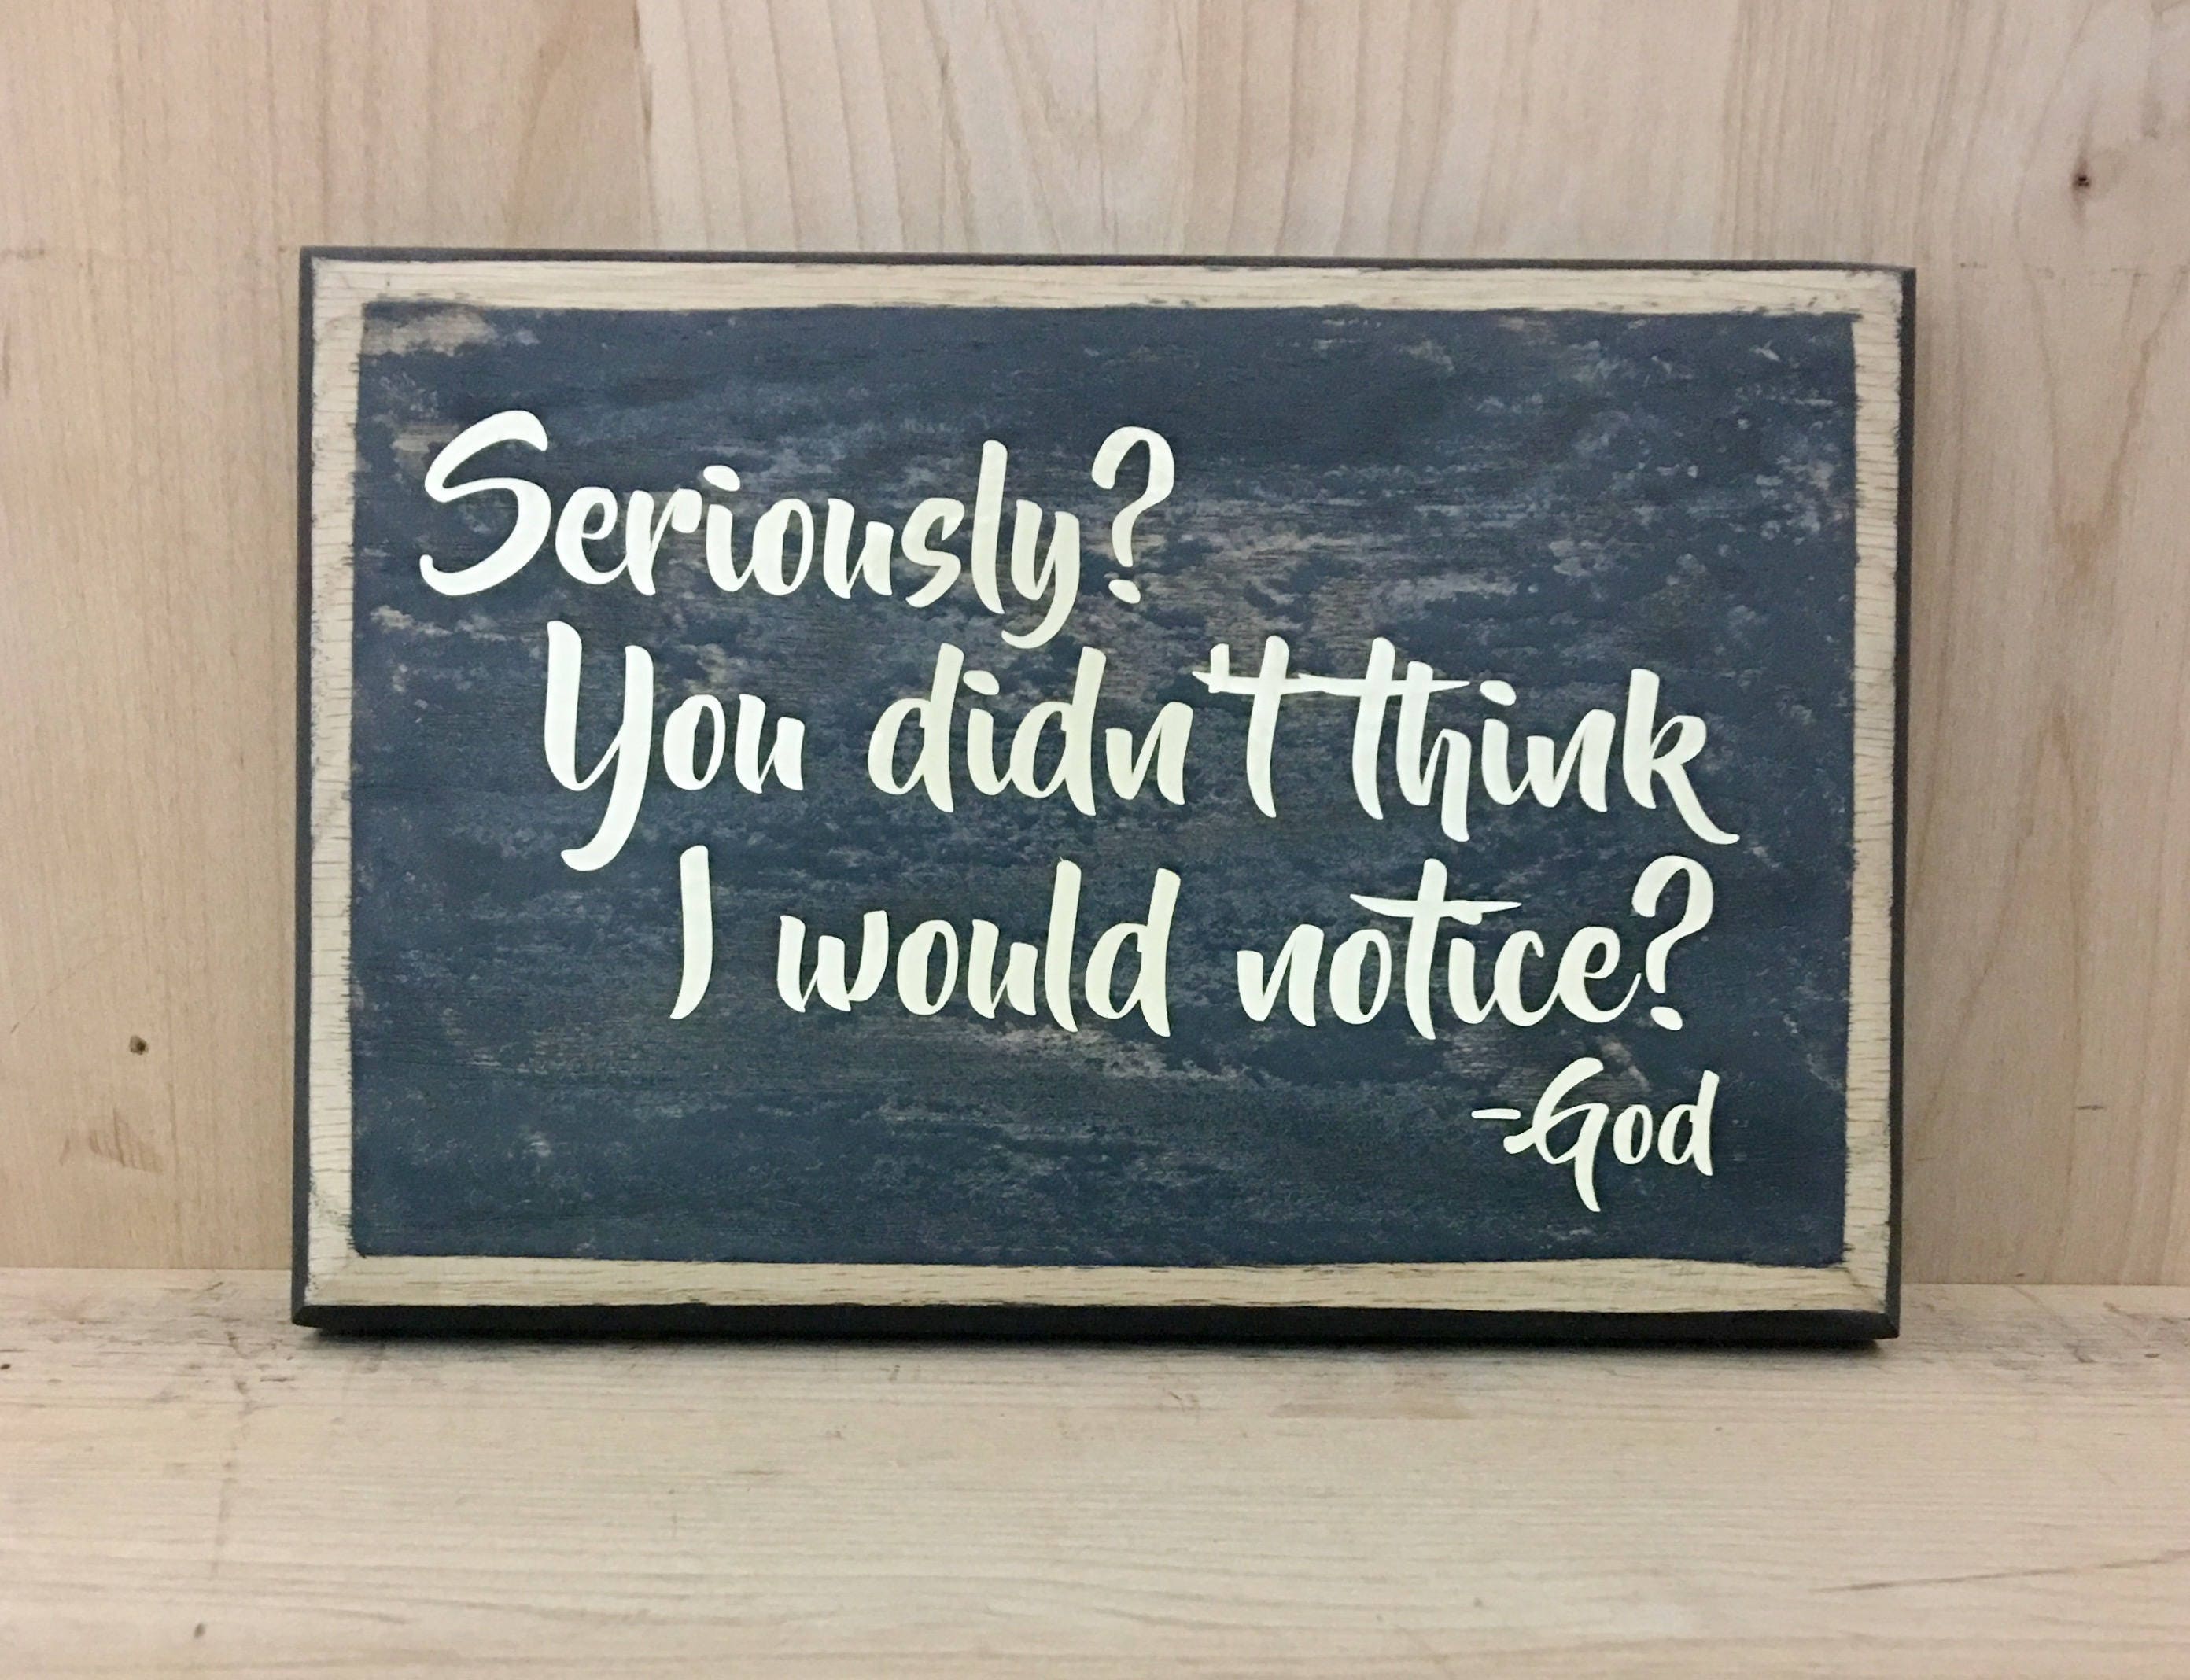 Seriously?
You didn't think
I would notice?
-God